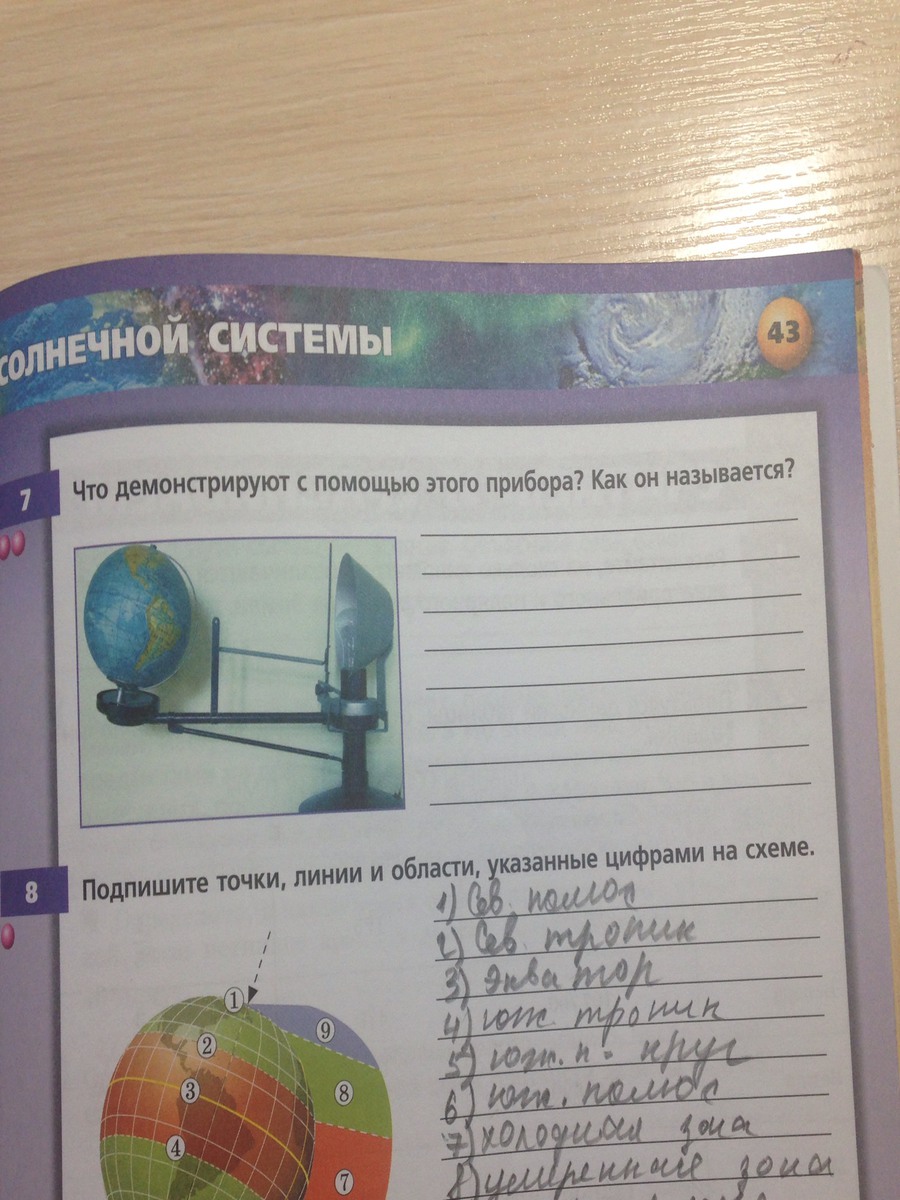 СОЛНЕЧНОЙ СИСТЕМЫ
43
7
Что демонстрируют с помощью этого прибора? Как он называется?
8
Подпишите точки, линии и области, указанные цифрами на схеме.
1) Сев. полюс
2) Сев. тропик
3) Экватор
4) юж. тропик
5) юж. п. круг
6) юж. полюс
7) холодная зона
8) умеренные зона
1
9
2
8
3
4
7